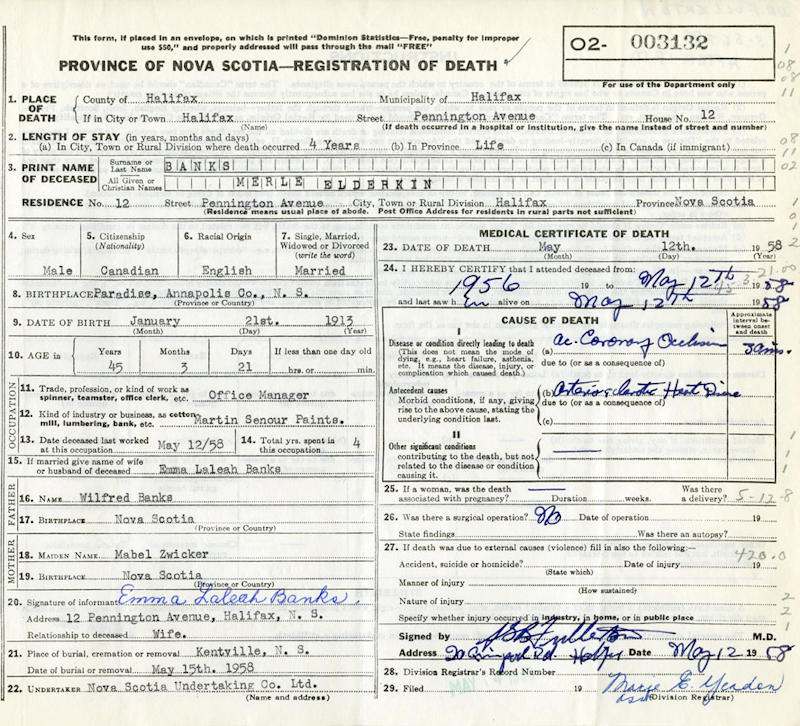 This form, if placed in an envelope, on which is printed "Dominion Statistics—Free, penalty for improper
use $50," and properly addressed will pass through the mail "FREE"
PROVINCE OF NOVA SCOTIA—REGISTRATION OF DEATH
O2- 003132
For use of the Department only
1. PLACE OF DEATH
County of Halifax Municipality of Halifax
If in City or Town Halifax Street Pennington Avenue House No. 12
(Name) (If death occurred in a hospital or institution, give the name instead of street and number)
2. LENGTH OF STAY (in years, months and days)
(a) In City, Town or Rural Division where death occurred 4 Years (b) In Province Life (c) In Canada (if immigrant)
3. PRINT NAME OF DECEASED
Surname or Last Name BANKS
All Given or Christian Names MERLE ELDERKIN
RESIDENCE No. 12 Street Pennington Avenue City, Town or Rural Division Halifax Province Nova Scotia
(Residence means usual place of abode. Post Office Address for residents in rural parts not sufficient)
4. Sex
Male
5. Citizenship (Nationality)
Canadian
6. Racial Origin
English
7. Single, Married, Widowed or Divorced (write the word)
Married
8. BIRTHPLACE Paradise, Annapolis Co., N. S.
(Province or Country)
9. DATE OF BIRTH January 21st. 1913
(Month) (Day) (Year)
10. AGE in Years Months Days If less than one day old
45 3 21 hrs. or min.
OCCUPATION
11. Trade, profession, or kind of work as
spinner, teamster, office clerk, etc. Office Manager
12. Kind of industry or business, as cotton
mill, lumbering, bank, etc. Martin Senour Paints.
13. Date deceased last worked
at this occupation May 12/58
14. Total yrs. spent in
this occupation 4
15. If married give name of wife
or husband of deceased Emma Laleah Banks
FATHER
16. NAME Wilfred Banks
17. BIRTHPLACE Nova Scotia
(Province or Country)
MOTHER
18. MAIDEN NAME Mabel Zwicker
19. BIRTHPLACE Nova Scotia
(Province or Country)
20. Signature of informant Emma Laleah Banks.
Address 12 Pennington Avenue, Halifax, N. S.
Relationship to deceased Wife.
21. Place of burial, cremation or removal Kentville, N. S.
Date of burial or removal May 15th. 1958
22. UNDERTAKER Nova Scotia Undertaking Co. Ltd.
(Name and address)
MEDICAL CERTIFICATE OF DEATH
23. DATE OF DEATH May 12th. 1958
(Month) (Day) (Year)
24. I HEREBY CERTIFY that I attended deceased from:
1956 19 to May 12Th 1958
and last saw h im alive on May 12Th 1958
CAUSE OF DEATH
Approximate interval between onset and death
I
Disease or condition directly leading to death
(This does not mean the mode of
dying, e.g., heart failure, asthenia,
etc. It means the disease, injury, or
complication which caused death.)
(a) ac. Coronary Occlusion
due to (or as a consequence of)
Antecedent causes
Morbid conditions, if any, giving
rise to the above cause, stating the
underlying condition last.
(b) Arteriosclerotic Heart Disease
due to (or as a consequence of)
(c)
II
Other significant conditions
contributing to the death, but not
related to the disease or condition
causing it.
25. If a woman, was the death
associated with pregnancy? Duration weeks. Was there a delivery?
5-12-8
26. Was there a surgical operation? No Date of operation 19
State findings Was there an autopsy?
27. If death was due to external causes (violence) fill in also the following:—
420.0
Accident, suicide or homicide? Date of injury 19
(State which)
Manner of injury
(How sustained)
Nature of injury
Specify whether injury occurred in industry, in home, or in public place
Signed by M.D.
Address Date May 12 1958
28. Division Registrar's Record Number
29. Filed 19 Marge E. Yeadon
(Division Registrar)